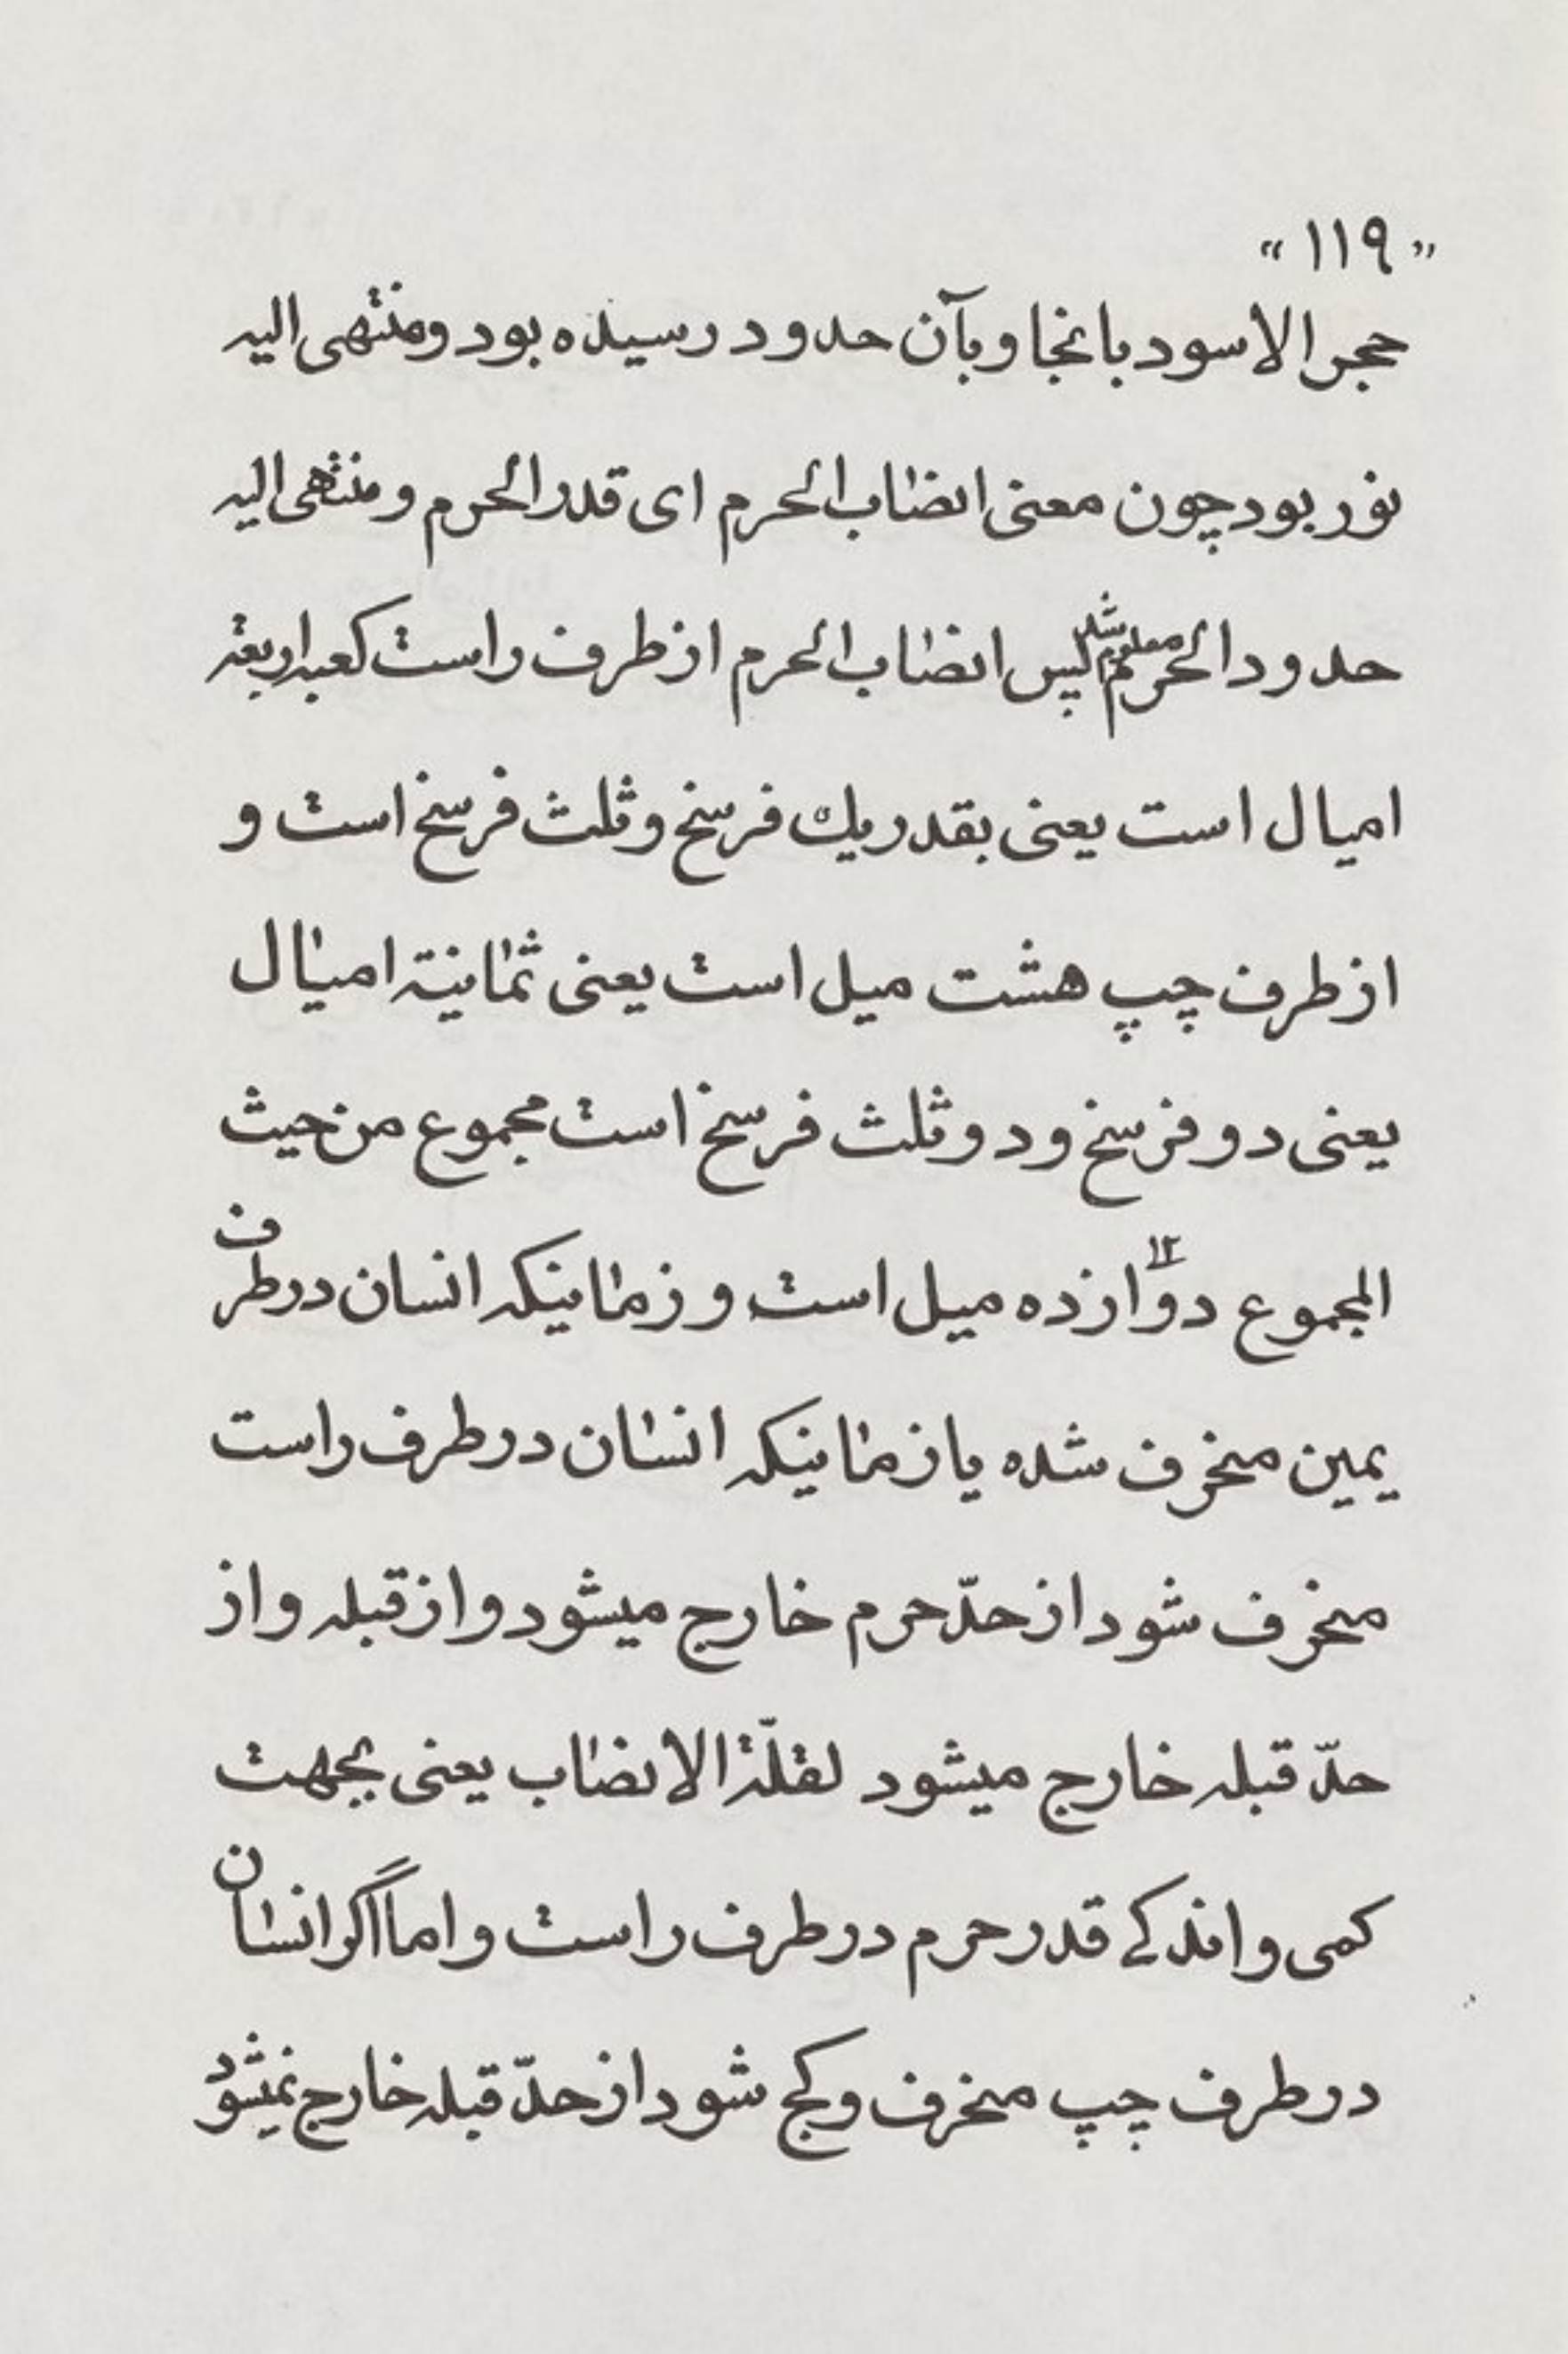 «۱۱۹»
حجر الاسود بانجا و بآن حدود رسیده بود و منتهی الیه
نور بود چون معنی انضاب الحرم ای قدر الحرم و منتهی الیه
حدود الحرم معلوم شد پس انضاب الحرم از طرف راست کعبه اربعة
امیال است یعنی بقدر یك فرسخ و ثلث فرسخ است و
از طرف چپ هشت میل است یعنی ثمانیة امیال
یعنی دو فرسخ و دو ثلث فرسخ است مجموع من حیث
المجموع دوازده ۱۲ میل است و زمانیکه انسان در طرف
یمین منحرف شده یا زمانیکه انسان در طرف راست
منحرف شود از حدّ حرم خارج میشود و از قبله و از
حدّ قبله خارج میشود لقلّة الانضاب یعنی بجهت
کمی و اندکے قدر حرم در طرف راست و اما اگر انسان
در طرف چپ منحرف و کج شود از حدّ قبله خارج نمیشود